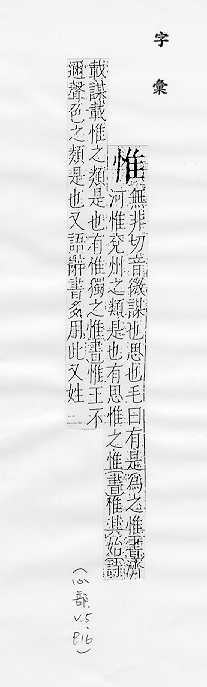 字彙
惟
無非切音微謀也思也毛曰有是為之惟書濟
河惟兗州之類是也有思惟之惟書惟其始詩
載謀載惟之類是也有惟獨之惟書惟王不
邇聲色之類是也又語辭書多用此又姓
(心部 V.5. P.16)